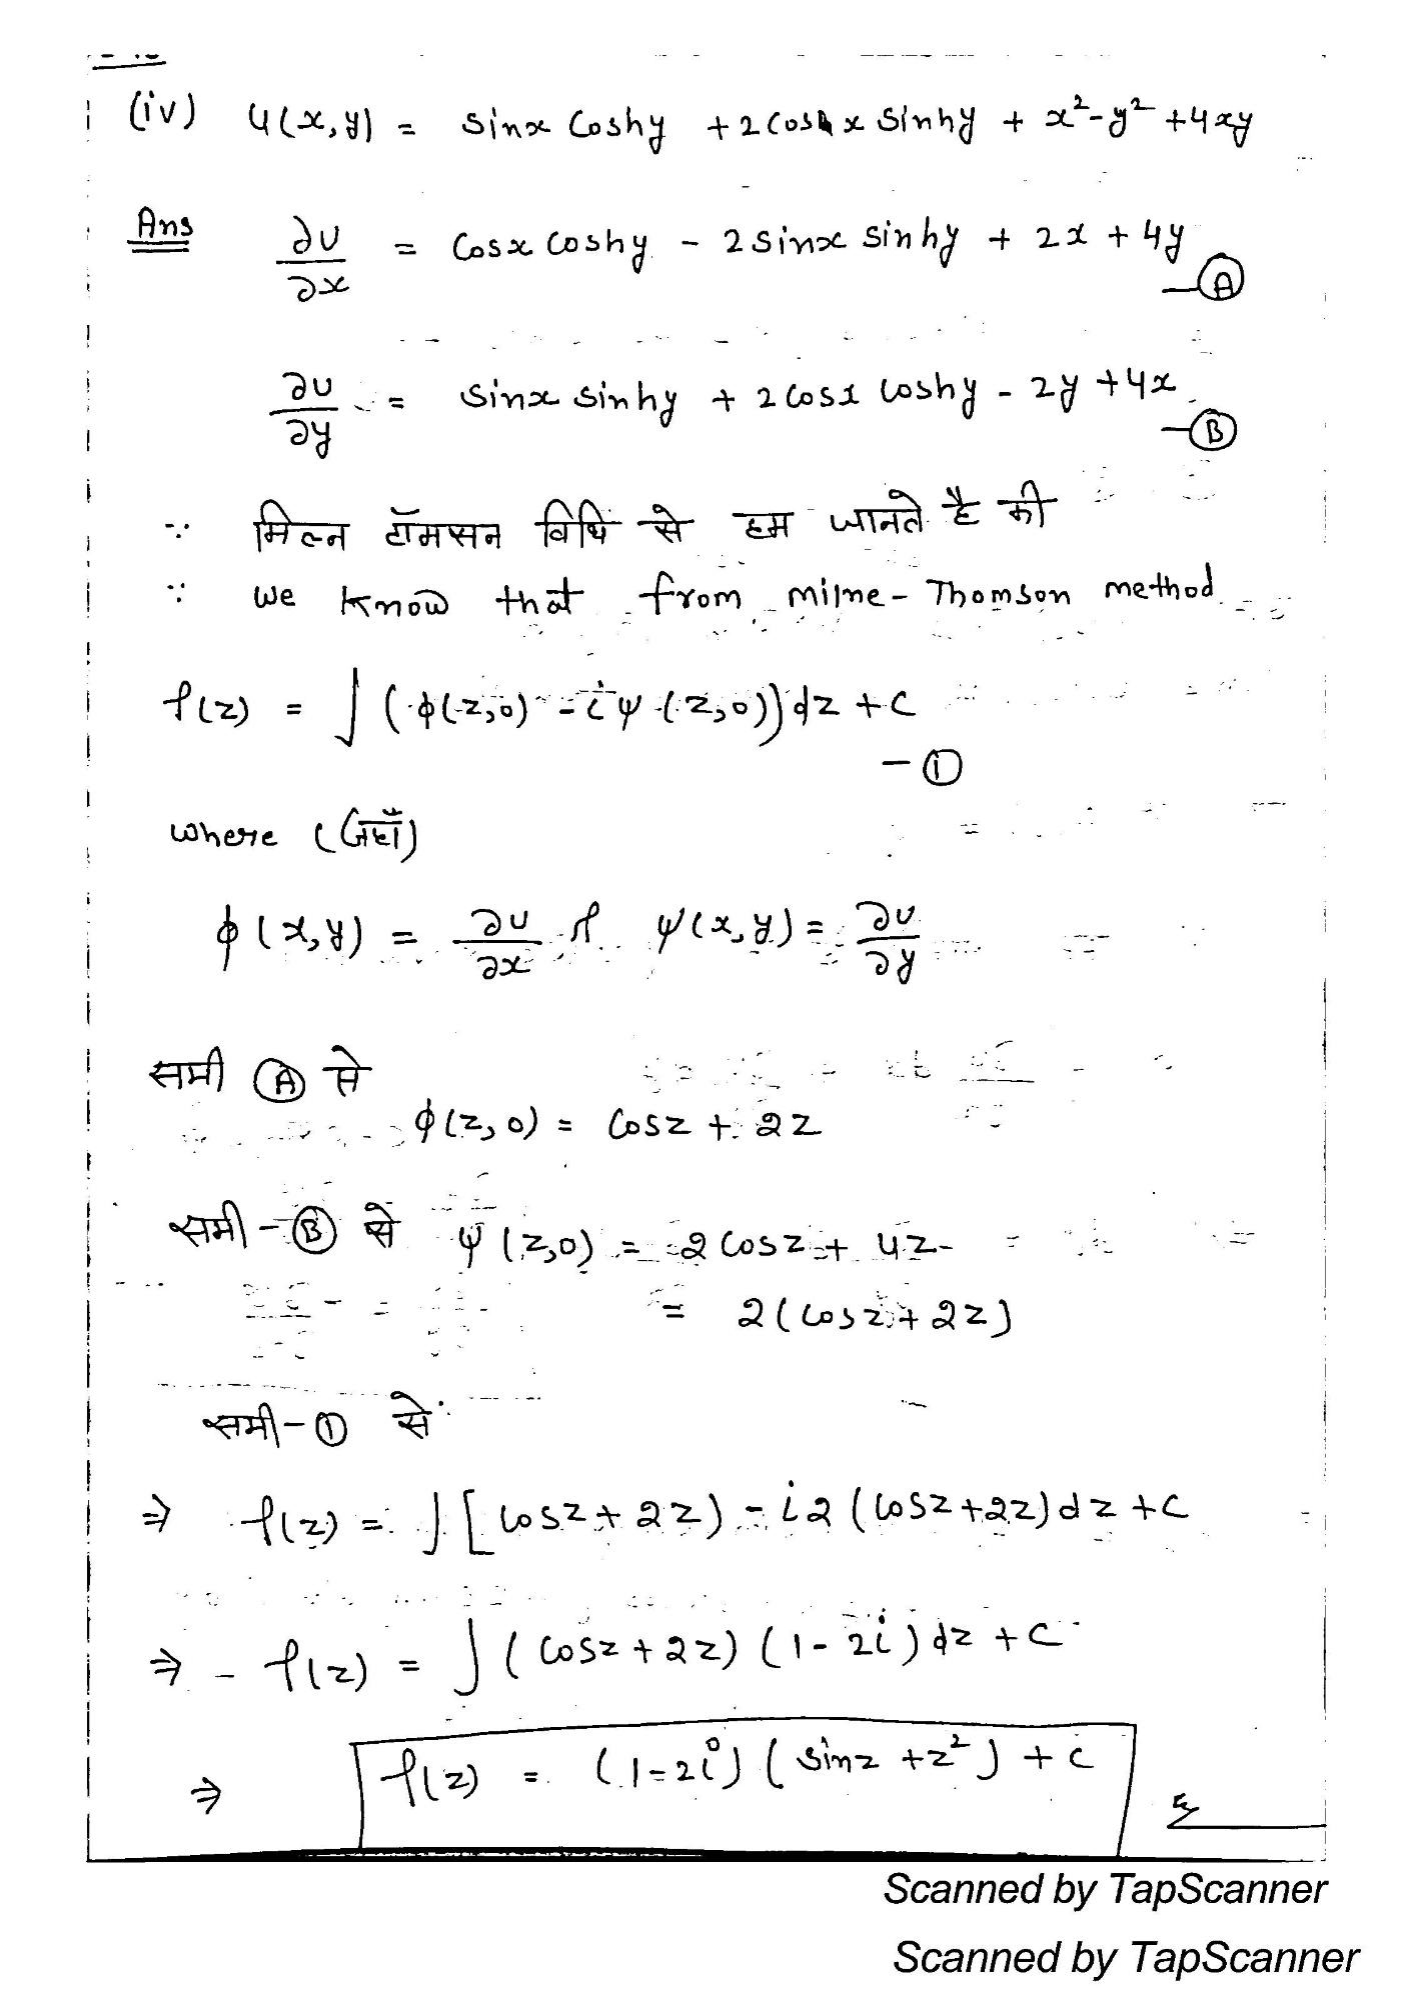 (iv) u(x,y) = sinx coshy + 2cosx sinhy + x² - y² + 4xy
Ans ∂u/∂x = cosx coshy - 2sinx sinhy + 2x + 4y
— Ⓐ
∂u/∂y = sinx sinhy + 2cosx coshy - 2y + 4x
— Ⓑ
∵ मिल्न टॉमसन विधि से हम जानते है की
∵ we know that from milne-Thomson method
f(z) = ∫(ϕ(z,0) - iψ(z,0))dz + c
— ①
where (जहाँ)
ϕ(x,y) = ∂u/∂x & ψ(x,y) = ∂u/∂y
समी Ⓐ से
ϕ(z,0) = cosz + 2z
समी - Ⓑ से ψ(z,0) = 2cosz + 4z
= 2(cosz + 2z)
समी - ① से
⇒ f(z) = ∫[cosz + 2z) - i2(cosz + 2z)dz + c
⇒ f(z) = ∫(cosz + 2z)(1 - 2i)dz + c
⇒ f(z) = (1 - 2i)(sinz + z²) + c
Scanned by TapScanner
Scanned by TapScanner